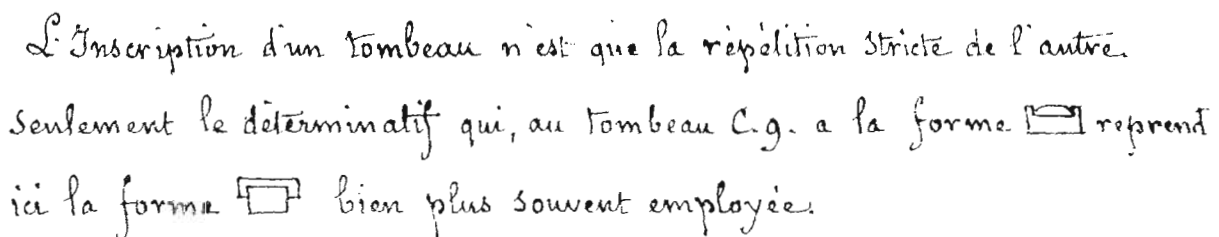 L'Inscription d'un tombeau n'est que la répétition stricte de l'autre.
seulement le déterminatif qui, au tombeau C.g. a la forme reprend
ici la forme bien plus souvent employée.